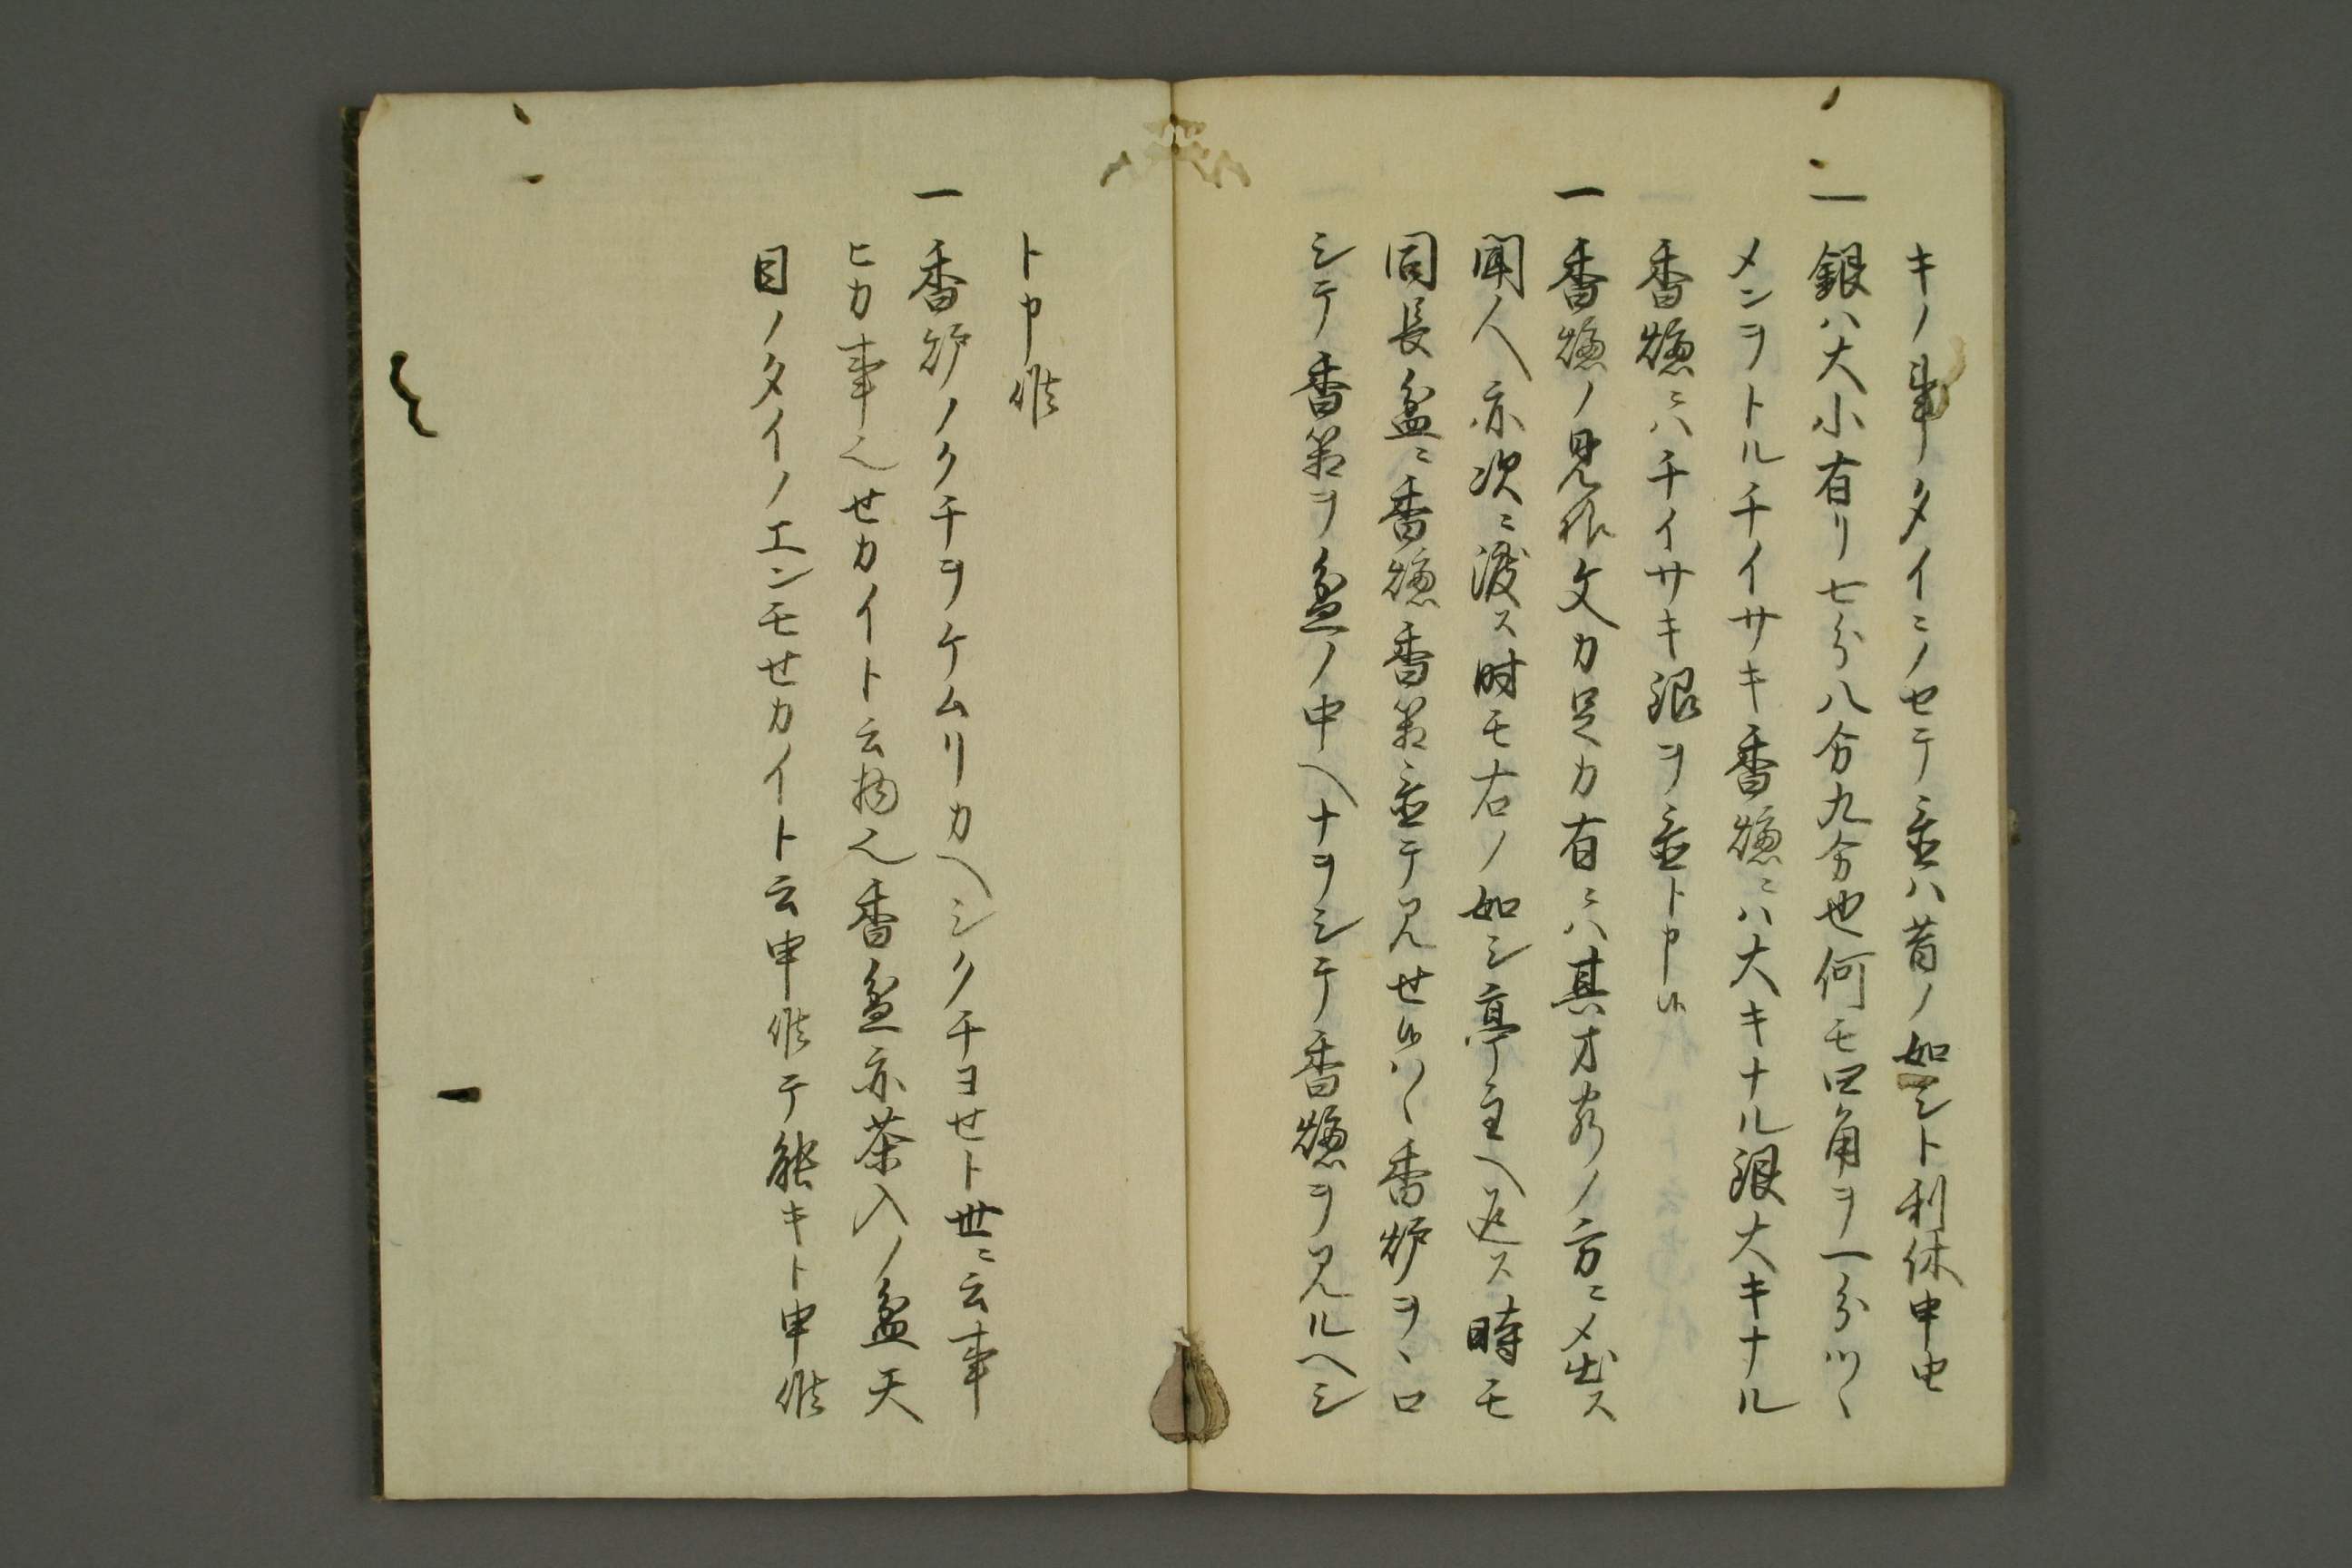 キノ事タイニノセテ置ハ昔ノ如シト利休申由
一 銀ハ大小有リ七分八分九分也何モ四角ヲ一分ツヽ
メンヲトル千イサキ香爐ニハ大キナル銀大キナル
香爐ニハ千イサキ銀ヲ置ト申候
一 香爐ノ見所文カ足カ有ニハ其方客ノ方ニメ出ス
聞人亦次ニ渡ス時モ右ノ如シ亭主ヘ返ス時モ
同長盆ニ香爐香箸置テ見せ候ハヽ香炉ヲヽロ
シテ香箸ヲ盆ノ中ヘナヲシテ香爐ヲ見ルヘシ
ト申候
一 香炉ノク千ヲケムリカヘシク千ヨせト世ニ云事
ヒカ事也せカイト云物也香盆亦茶入ノ盆天
目ノタイノエンモせカイト云申候テ能キト申候